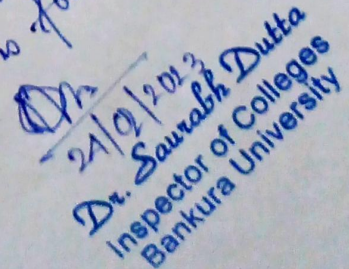 24/02/2023
Dr. Saurabh Dutta
Inspector of Colleges
Bankura University